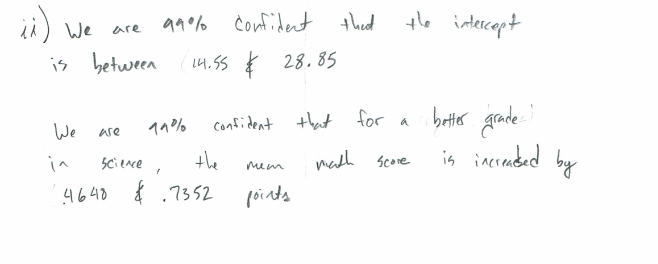 ii) We are 99% confident that the intercept
is between 14.55 & 28.85
We are 99% confident that for a better grade
in science, the mean math score is increased by
.4648 & .7352 points